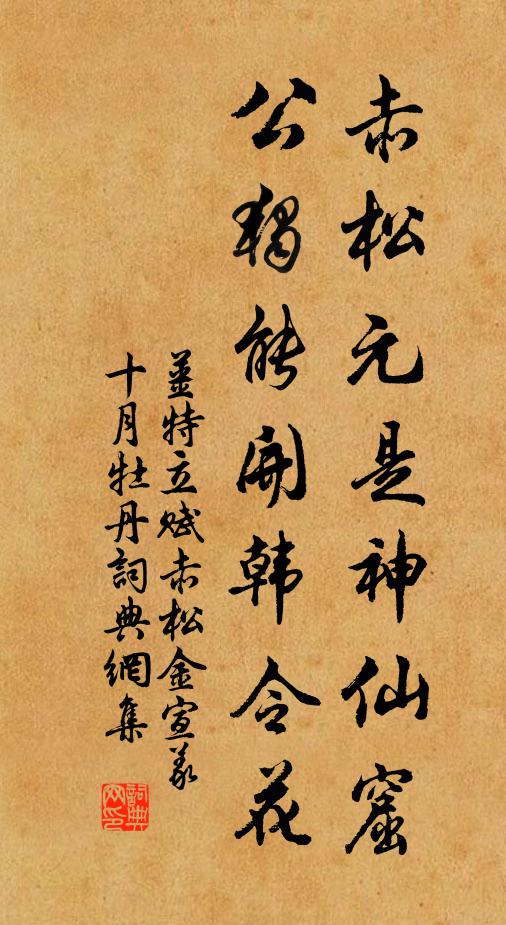 赤松元是神仙窟
公獨能開韩令花
姜特立赋赤松金宣義
十月牡丹詞典網集
詞典
网印